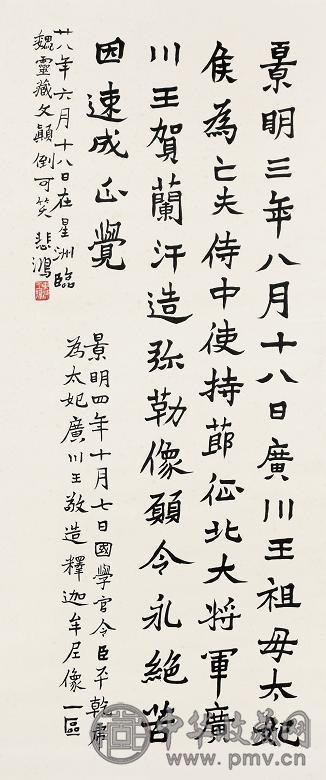 景明三年八月十八日廣川王祖毋太妃
侯為亡夫侍中使持莭征北大将軍廣
川王賀蘭汗造弥勒像願令永絶苦
因速成𠙖覺
景明四年十月七日國學官令臣平乾席
為太妃廣川王敬造釋迦牟尼像一區
廿八年六月十八日在星洲臨
魏靈藏文顛倒可笑 悲鴻
中华收藏网
www.pmv.cn